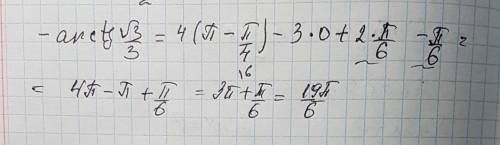 - arcctg √3/3 = 4(π - π/4) - 3·0 + 2·π/6 - π/6 =
= 4π - π + π/6 = 3π + π/6 = 19π/6